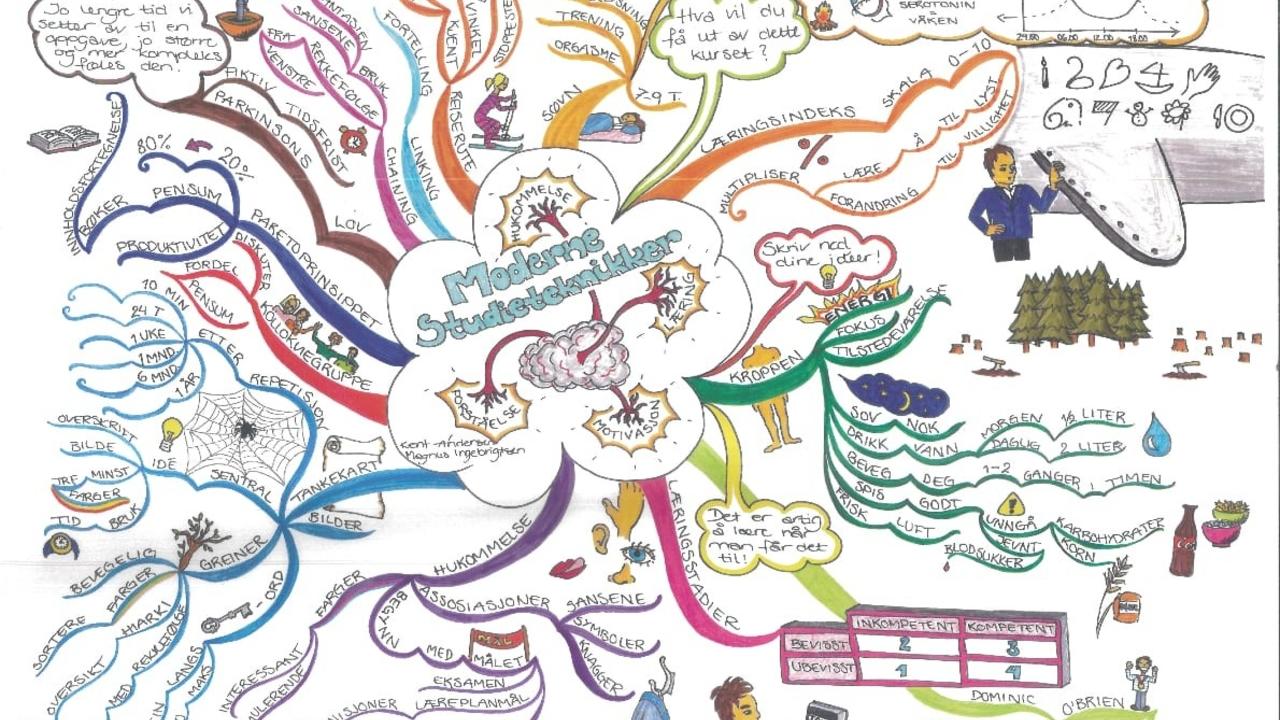 Jo lengre tid vi
setter av til en
oppgave, jo større
og mer kompleks
føles den!
FIKTIV TIDSFRIST
PARKINSONS
LOV
FRA VENSTRE
SANSENE
REKKEFØLGE
BRUK
CHAINING
FORTELLING
LINKING
KJENT
VINKEL
REISERUTE
TRENING
ORGASME
SØVN
7-9 T.
Hva vil du
få ut av dette
kurset?
SEROTONIN
=
VÅKEN
24.00 06.00 12.00 18.00
LÆRINGSINDEKS
SKALA 0-10
MULTIPLISER
%
LÆRE Å TIL LYST
FORANDRING TIL VILLIGHET
10
INNHOLDSFORTEGNELSE
80% 20%
BØKER
PENSUM
PRODUKTIVITET
PARETOPRINSIPPET
DISKUTER
FORDEL
PENSUM
KOLLOKVIEGRUPPE
HUKOMMELSE
Moderne
Studieteknikker
LÆRING
FORSTÅELSE
MOTIVASJON
Kent-Anders
Magnus Ingebrigtsen
Skriv ned
dine idéer!
ENERGI
FOKUS
TILSTEDEVÆRELSE
KROPPEN
SOV NOK
DRIKK VANN
MORGEN ½ LITER
DAGLIG 2 LITER
BEVEG DEG 1-2 GANGER I TIMEN
SPIS GODT
UNNGÅ KARBOHYDRATER
KORN
JEVNT
BLODSUKKER
FRISK LUFT
10 MIN
24 T
1 UKE
1 MND
6 MND
1 ÅR
ETTER
REPETISJON
OVERSKRIFT
BILDE
TRE MINST
FARGER
TID BRUK
IDÉ
SENTRAL
TANKEKART
BILDER
BEVEGELIG
GREINER
FARGER
HIARKI
SORTERE
OVERSIKT
REKKEFØLGE
MED
-ORD
LANGS
MAKS
HUKOMMELSE
FARGER
INTERESSANT
BEGYNN
MED
MÅL
MÅLET
EKSAMEN
LÆREPLANMÅL
ASSOSIASJONER
SANSENE
SYMBOLER
KNAGGER
LÆRINGSSTADIER
Det er artig
å lære når
man får det
til!
INKOMPETENT KOMPETENT
BEVISST 2 3
UBEVISST 1 4
DOMINIC O'BRIEN